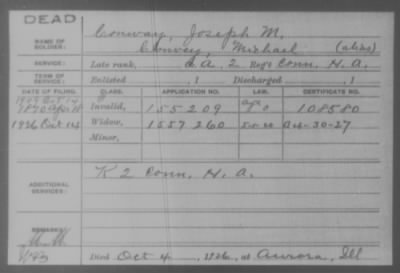 DEAD
NAME OF SOLDIER: Conway, Joseph M.
Convey, Michael (alias)
SERVICE: Late rank, A, 2 Regt Conn. H. A.
TERM OF SERVICE: Enlisted , 1 Discharged , 1
DATE OF FILING. CLASS. APPLICATION NO. LAW. CERTIFICATE NO.
Invalid, 155209 108580
1926 Oct 14 Widow, 1557260 A-4-30-27
Minor,
ADDITIONAL SERVICES: K 2 Conn. H. A.
REMARKS:
Died Oct 4, 1926, at Aurora, Ill